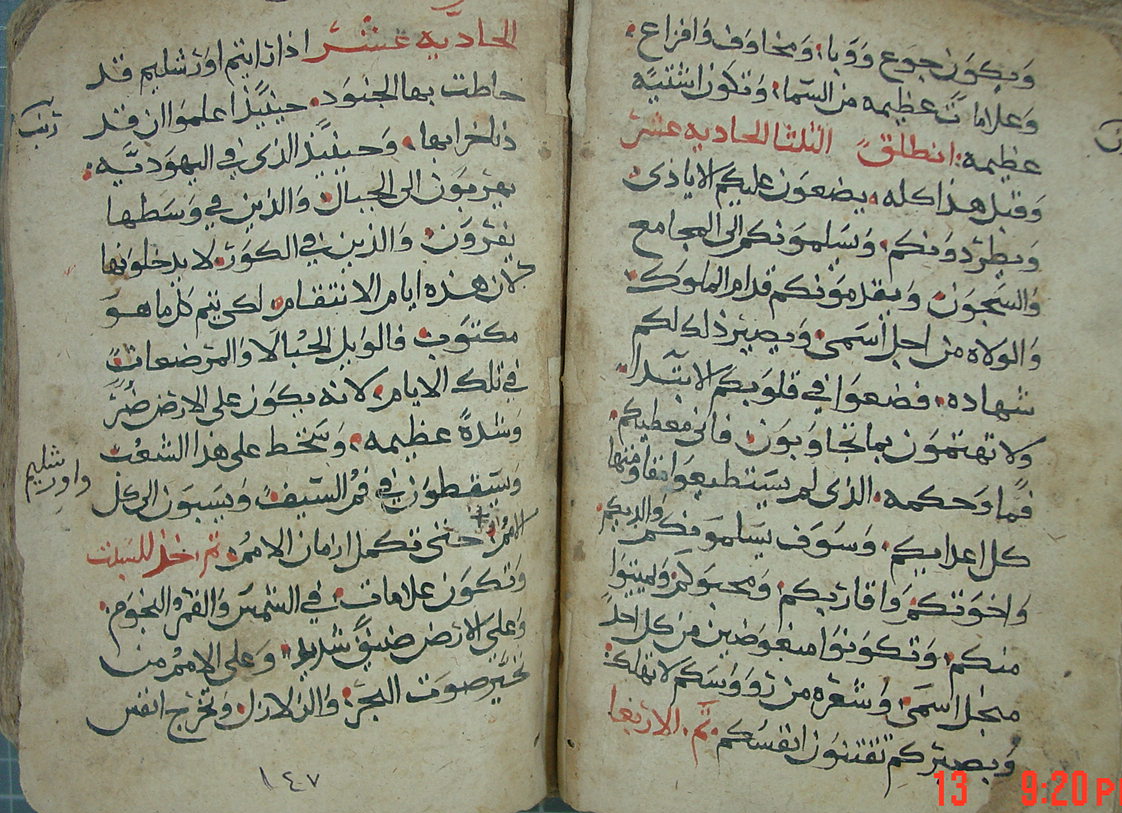 وَيكوَن جوَع وَوَبا، وَمخاوَف وَافزاع:
وَعلامات عظيمه من السما، وَتكوَن اشتيَة
عظيمه: انطلق التلتا الحاديه عشر
وَقبل هذا كله، يضعوَن عليكم الايادى
وَيطردوَنكم، وَيسَلموَنكم الى المجامع
وَالسجوَن، وَيقدموَنكم قدام الملوَك
وَالولاه من اجل اسَمى، وَيصير ذلك لكم
شهاده، فضعوَا في قلوَبكم الابتدا،
ولا تهتموَن بما تجاوَبوَن، فانى معطيكم
فمًا وَحكمه، الذى لم يسَتطيعوَا
كل اعدايكم، وَسَوَف يسَلموَنكم والديكم
وَاخوَتكم، وَاقاربكم، وَمحبوَكم، وَيميتوَا
منكم، وَتكوَنوَا مبغوَضين من كل احدٍ
مجل اسَمى، وَشعره من رووَسَكم لاتهلك:
وَبصبركم تقتنوَن انفسَكم، تم، الاربعا
الحاديه عشر اذا رايتم اورشليم قد
حاطت بها الجنوَد، حينيَذٍ اعلموَا ان قد
دنا خرابها، وَحينيَذ الذى في اليهوَديَه:
يهربوَن الى الجبال، وَالذين في وَسَطها
يفروَن، وَالذين في الكوَر، لا يدخلوَنها
لان هذه ايام الانتقام، لكى يتم كل ما هوَ
مكتوَب، فالوَيل للحبالا، وَالمرضعات
في تلك الايام، لانه يكوَن على الارض ضرٌ
وَشدةً عظيمه، وَسَخط على هذا الشعب
وَسَيقطوَن في فم السَيف، وَيسَبوَن الى كل
الامم، حتى تكمل ازمان الامم، تم، خر للسبت
وَتكوَن علامات، في الشمسَ وَالقمر وَالنجوَم،
وَعلى الارض ضيقٌ شديد، وَعلى الامم من
تحيَر صوَت البحر، وَالزلازل، وَتخرج انفس
واورشليم
١٤٧
13 9:20 PM